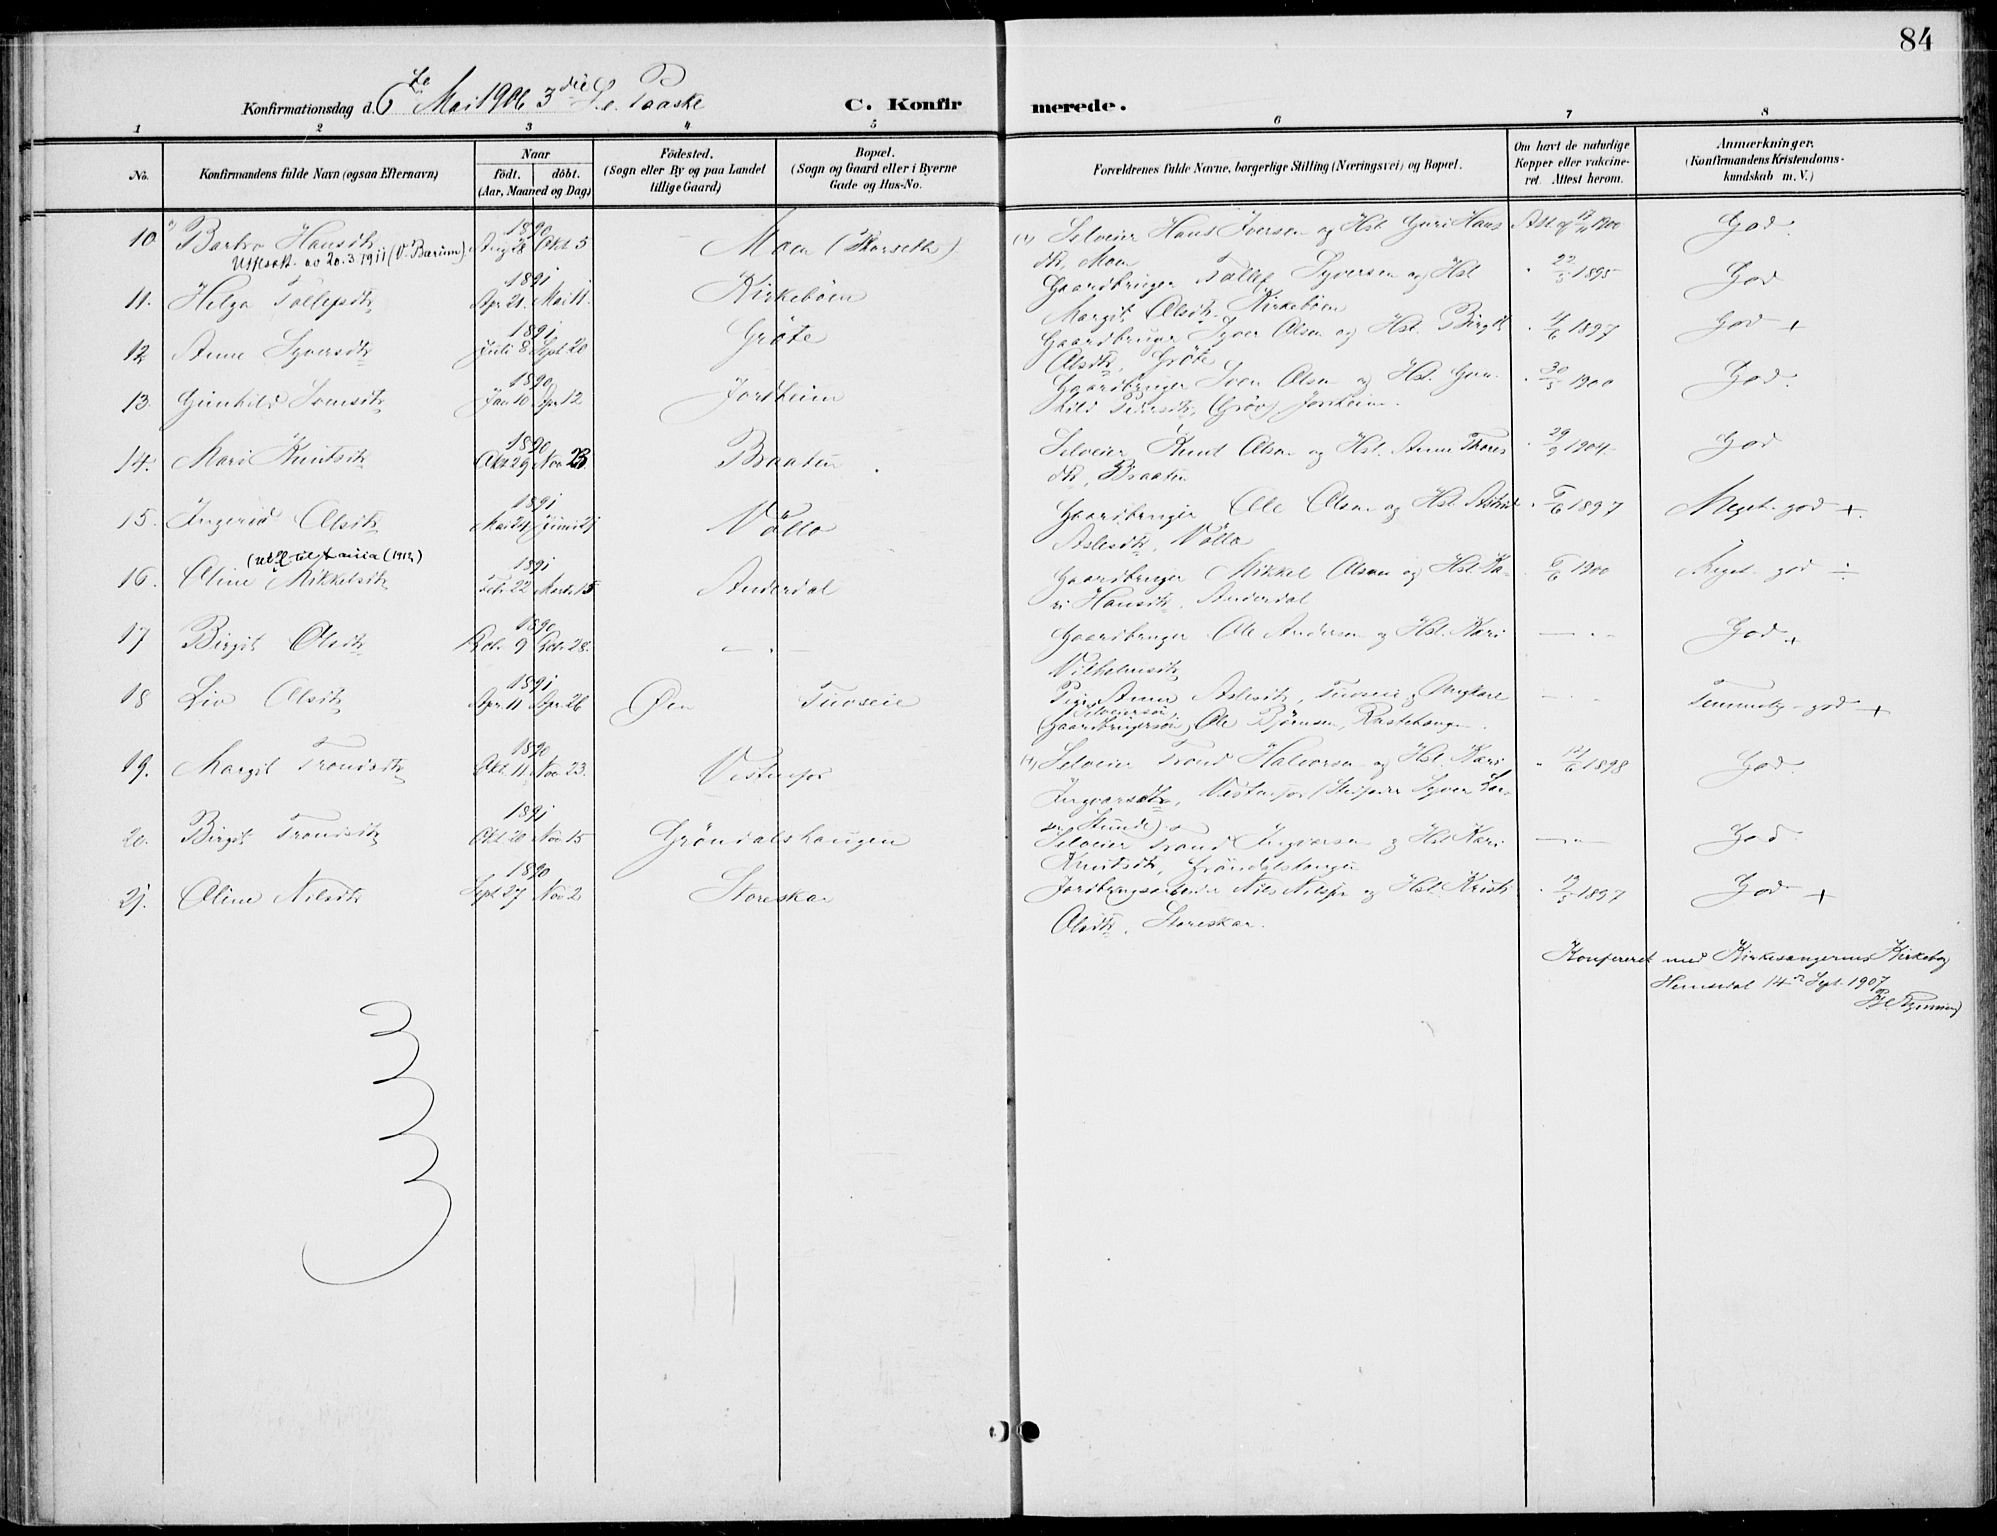 84
Konfirmationsdag d. 6te Mai 1906 3die S. e. Paaske
C. Konfirmerede.
1 2 3 4 5 6 7 8
No.
Konfirmandens fulde Navn (ogsaa Efternavn)
Naar
födt. döbt.
(Aar, Maaned og Dag)
Födested.
(Sogn eller By og paa Landet
tillige Gaard)
Bopæl.
(Sogn og Gaard eller i Byerne
Gade og Hus-No.
Forældrenes fulde Navne, borgerlige Stilling (Næringsvei) og Bopæl.
Om havt de naturlige
Kopper eller vakcineret. Attest herom.
Anmærkninger.
(Konfirmandens Kristendomskundskab m. V.)
10. Barbro Hansdtr. 1890 Aug 28 Okt. 5 Moen (Skarseth) Selveier Hans Iversen og Hst. Guri Hans Att. af 1900 God.
Uttlsatt. av 20.3 1911 (V. Bærum)
dtr., Moen
11. Helga Tollefsdtr. 1891 Apr. 21. Mai 11. Kirkeböen Gaardbruger Tollef Syversen og Hst 22/5 1895 God
Margit Olsdtr. Kirkeböen
12 Anne Syversdtr 1891 Juli 8 Sept 20 Gröte Gaardbruger Syver Olsen og Hst. Birgit 4/6 1897 God +
Olsdtr., Gröte
13. Gunhild Svensdtr. 1890 Jan 10 Apr 12 Jordheim Gaardbruger Sven Olsen og Hst. Gun- 30/5 1900 God.
hild Pedersdtr. (Gröv) Jordheim.
14. Mari Knutsdtr 1890 Okt 29 Nov 23 Braaten Selveier Knut Olsen og Hst. Anne Thores 29/9 1904 God
dtr., Braaten
15. Ingerid Olsdtr. 1891 Mai 24 Juni 21 Völlo Gaardbruger Ole Olsen og Hst. 1897 Meget god +.
Aslesdtr., Völlo
(utfl til (1912)
16. Oline Mikkelsdtr 1891 Feb. 22 Marts 15 Anderdal Gaardbruger Mikkel Olsen og Hst. Ka- 1900 Meget god
ri Hansdtr., Anderdal
17 Birgit Olsdtr. 1890 9 28. — " — Gaardbruger Ole Andersen og Hst. Kari — " — God +
Vilhelmsdtr.
18 Liv Olsdtr. 1891 Apr. 11 Apr. 26 Øen Tuvseie Pige Anne Aslesdtr., Tuvseie & Ungkarl — " Temmelig god +
Selveiersön
Gaardbrugersön Ole Björnsen, Rustehaugen.
19. Margit Trondsdtr. 1890 Okt. 11 Nov. 23. Selveier Trond Halvorsen og Hst. Kari 1898 God.
Ingvarsdtr., (Stiffader Syver
Stunde).
20. Birgit Trondsdtr 1891 Okt 20 Nov 15 Gröndalshaugen Selveier Trond Ingvarsen og Hst Kari — " — God
Knutsdtr., Gröndalshaugen
21. Oline Nilsdtr. 1890 Sept 27 Nov 2 Storeskar Jordbrugsarbeider Nils Nilsen og Hst. Kristi 1897 God +
Olsdtr., Storeskar.
Konfereret med Kirkesangerens Kirkebog
Hemsedal 14de Sept. 1907